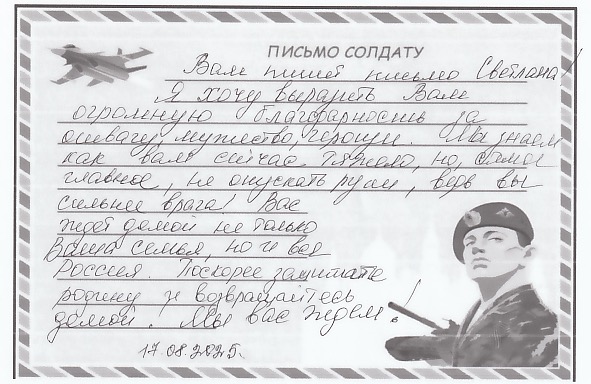 ПИСЬМО СОЛДАТУ
Вам пишет письмо Светлана!
Я хочу выразить Вам
огромную благодарность за
отвагу, мужество, героизм. Мы знаем
как вам сейчас тяжело, но, самое
главное, не опускать руки, ведь вы
сильнее врага! Вас
ждет домой не только
Ваша семья, но и вся
Россия. Поскорее защищайте
родину и возвращайтесь
домой. Мы вас ждем!
17.08.2025.